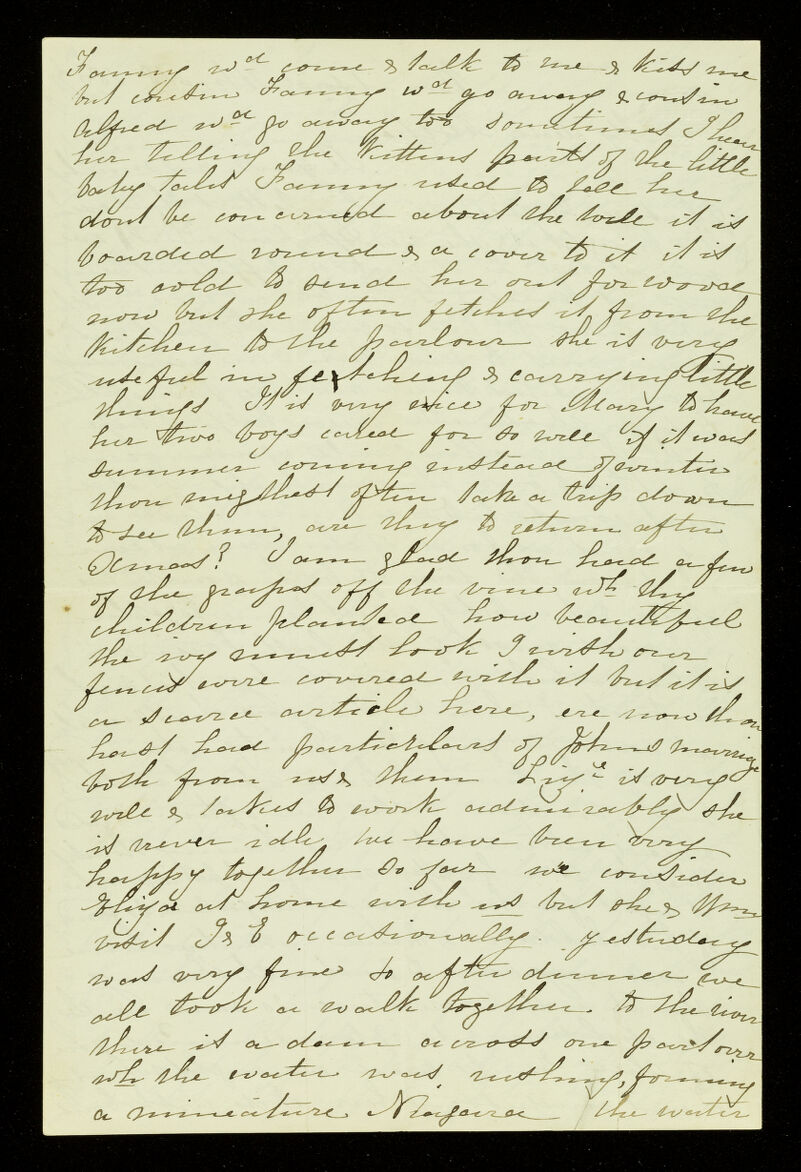 Fanny wd come & talk to me & kiss me
but cousin Fanny wd go away & cousin
Alfred wd go away too sometimes I hear
her telling the Kittens parts of the little
baby tales Fanny used to tell her
dont be concerned about the well it is
boarded round & a cover to it it is
too cold to send her out for wood
now but she often fetches it from the
Kitchen to the parlour she is very
useful in fetching & carrying little
things It is very nice for Mary to have
her two boys cared for so well if it was
summer coming instead of winter
thou mightest often take a trip down
to see them, are they to return after
Xmas? I am glad thou had a few
of the grapes off the vine wh thy
children planted how beautiful
the ivy must look I wish our
fences were covered with it but it is
a scarce article here, ere now thou
hast had particulars of Johns marriage
both from us & them Lizie is very
well & takes to work admirably she
is never idle we have been very
happy together so far we consider
Eliza at home with us but she & Wm
visit J & E occasionally. yesterday
was very fine so after dinner we
all took a walk together to the river
there is a dam across one part over
wh the water was rushing, forming
a mineature Niagara the water